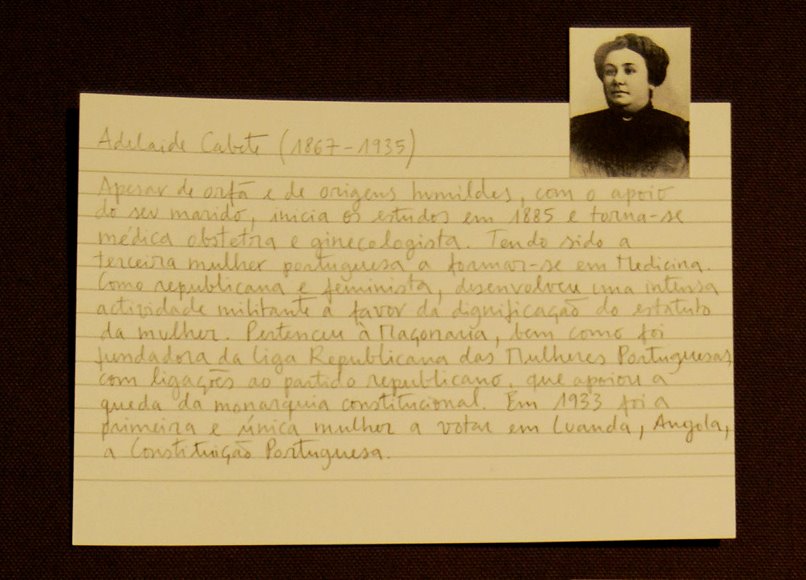 Adelaide Cabete (1867-1935)
Apesar de orfã e de origens humildes, com o apoio
do seu marido, inicia os estudos em 1885 e torna-se
médica obstetra e ginecologista. Tendo sido a
terceira mulher portuguesa a formar-se em Medicina.
Como republicana e feminista, desenvolveu uma intensa
actividade militante a favor da dignificação do estatuto
da mulher. Pertenceu à Maçonaria, bem como foi
fundadora da Liga Republicana das Mulheres Portuguesas,
com ligações ao partido republicano, que apoiou a
queda da monarquia constitucional. Em 1933 foi a
primeira e única mulher a votar em Luanda, Angola,
a Constituição Portuguesa.